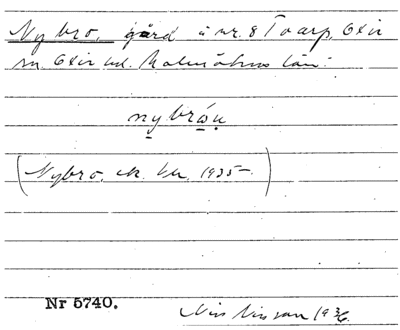 Nybro, gård å nr. 8 Toarp, Oxie
sn. Oxie hd. Malmöhus län.
nybrω̨ṳ
(Nybro, ek. ku. 1935-)
Nr 5740.
Nils Nilsson 1936.